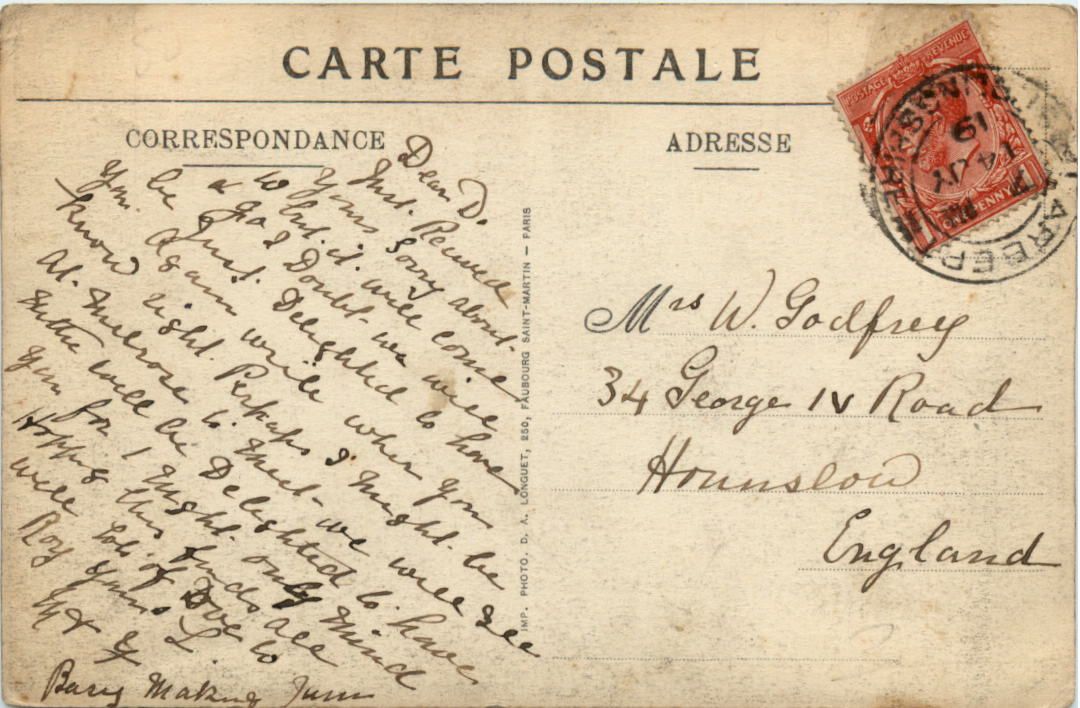 CARTE POSTALE
CORRESPONDANCE
ADRESSE
Dear D.
Just. Received
Yours Sorry about-
to but. it will come
& go I Doubt- we will
be Just. Delighted to have
You. again write when you
know right. Perhaps I Might. be
at. Melrose to. Meet- we will see
will be Delighted to. have
You for I Might. only Mind
Hopping this finds all
well Lots. of Love to
Roy Yours L.
Busy Making Jam
IMP. PHOTO. D. A. LONGUET, 250, FAUBOURG SAINT-MARTIN — PARIS
Mrs W. Godfrey
34 George IV Road
Hounslow
England
POSTAGE REVENUE
ONE PENNY
14 JY
19